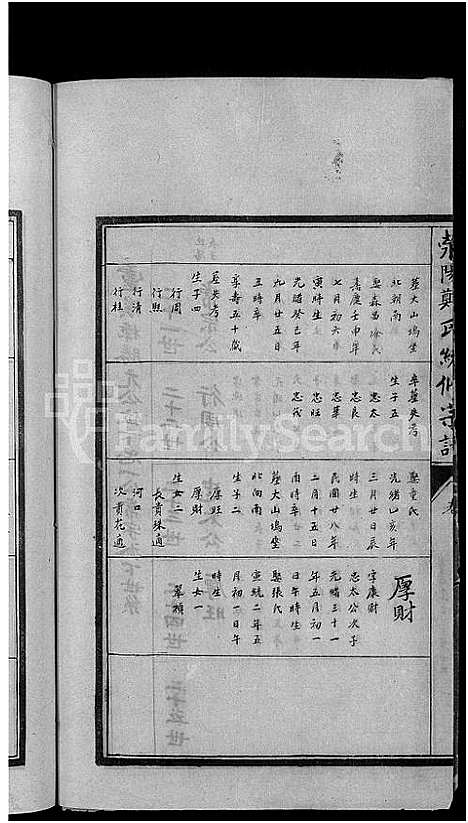 滎陽鄭氏統修宗譜
葬大山塢坐
北朝南
娶森昌徐氏
嘉慶壬申年
七月初六日
寅時生
光緒癸巳年
九月廿五日
丑時卒
享壽五十歲
葬失考
生子四
行周
行熙
行清
行桂
卒葬失考
生子五
忠太
忠良
忠華
忠旺
忠茂
娶童氏
光緒乙亥年
三月廿日辰
時生
民國廿八年
二月十五日
酉時卒
葬大山塢坐
北向南
生子二
厚旺
厚財
生女二
長貴珠適
河口
次貴花適
厚財
字康財
忠太公次子
光緒三十一
年五月初一
日午時生
娶張氏
宣統二年五
月初一日午
時生
生女一
翠楨
FamilySearch